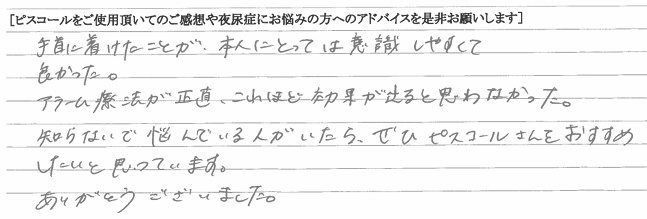 [ピスコールをご使用頂いてのご感想や夜尿症にお悩みの方へのアドバイスを是非お願いします]
手首に着けたことが、本人にとっては意識しやすくて
良かった。
アラーム療法が正直、これほど効果が出ると思わなかった。
知らないで悩んでいる人がいたら、ぜひピスコールさんをおすすめ
したいと思っています。
ありがとうございました。